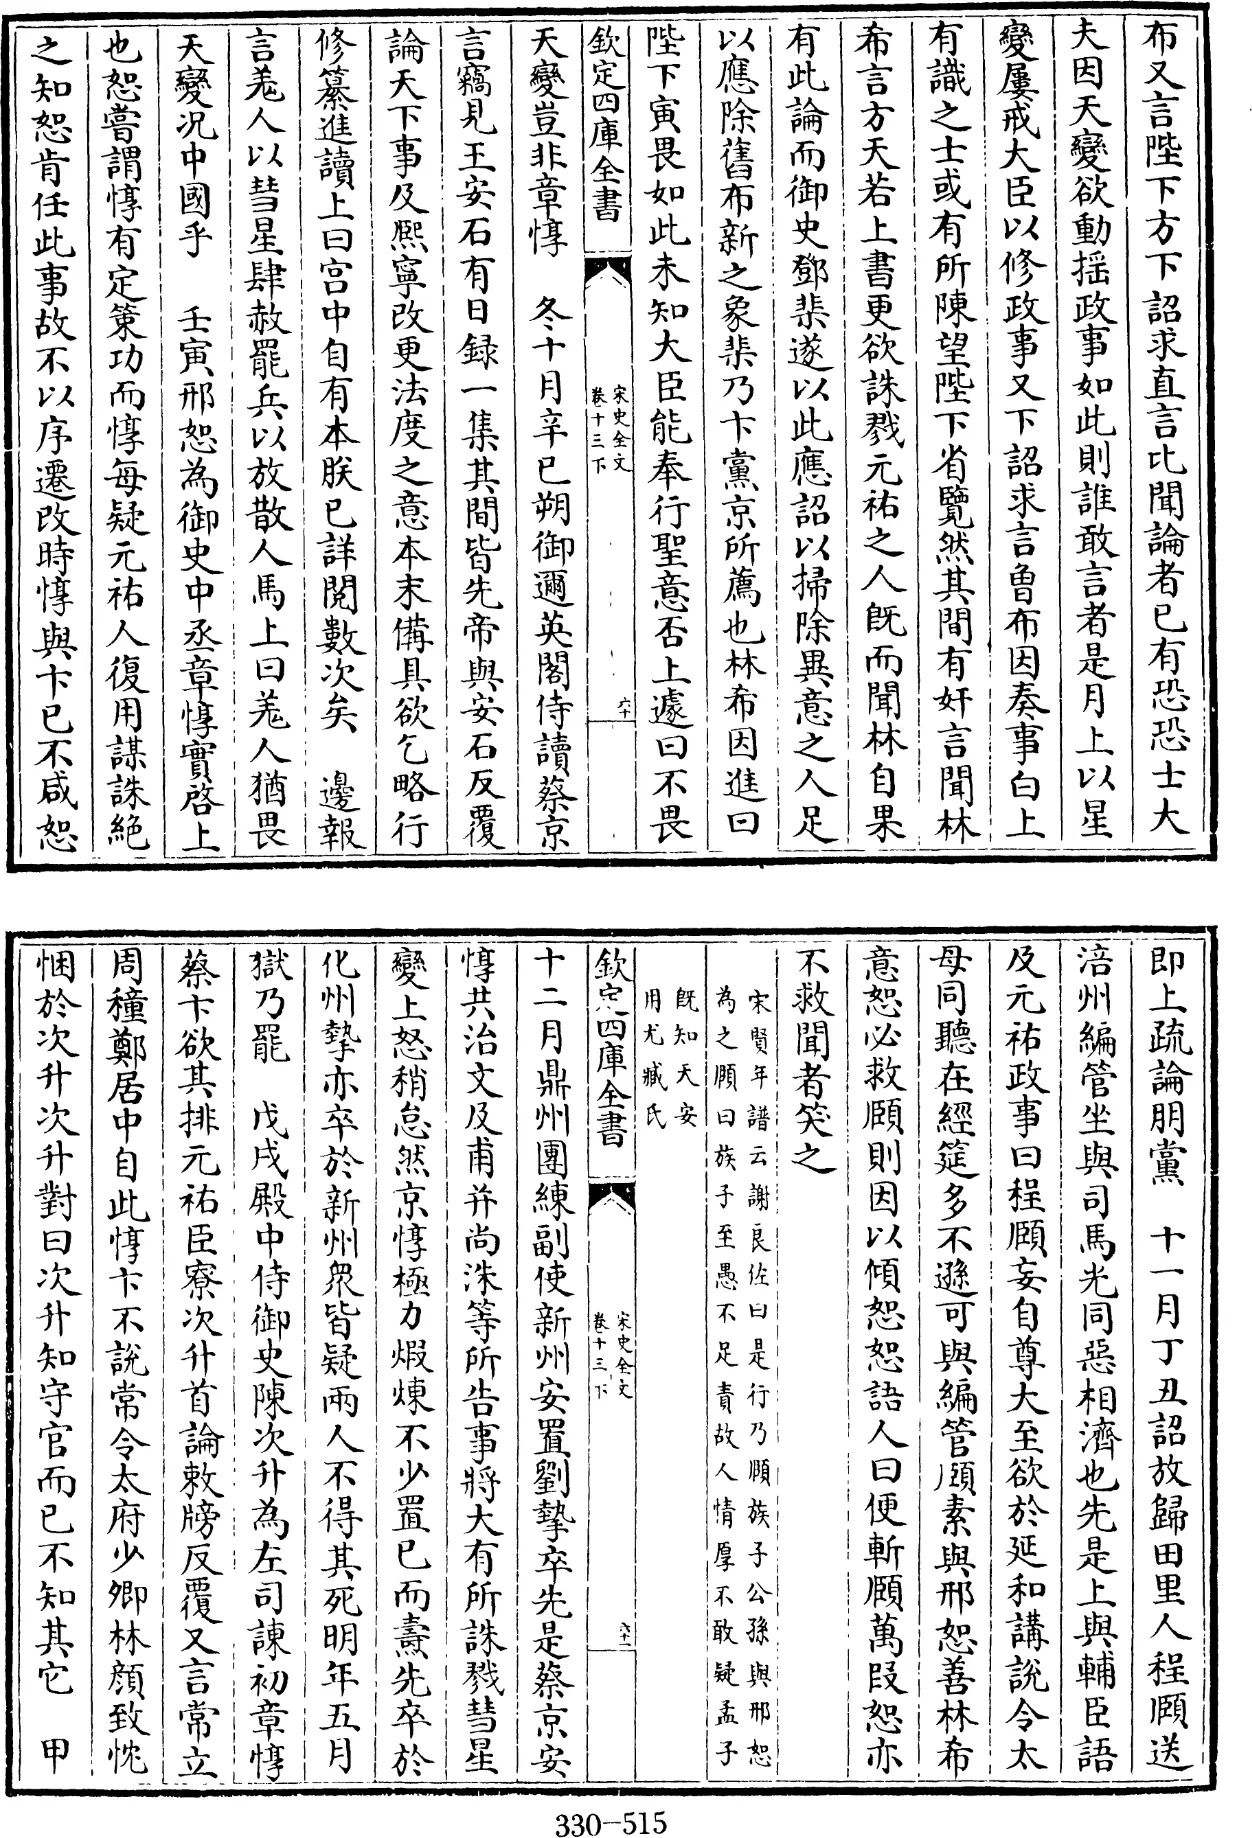 布又言陛下方下詔求直言比聞論者已有恐恐士大
夫因天變欲動揺政事如此則誰敢言者是月上以星
變屢戒大臣以修政事又下詔求言魯布因奏事白上
有識之士或有所陳望陛下省覽然其間有奸言聞林
希言方天若上書更欲誅戮元祐之人既而聞林自果
有此論而御史鄧棐遂以此應詔以掃除異意之人足
以應除舊布新之象棐乃卞黨京所薦也林希因進曰
陛下寅畏如此未知大臣能奉行聖意否上遽曰不畏
欽定四庫全書
宋史全文
卷十三下
六十
天變豈非章惇 冬十月辛已朔御邇英閣侍讀蔡京
言竊見王安石有日録一集其間皆先帝與安石反覆
論天下事及熙寧改更法度之意本末備具欲乞略行
修纂進讀上曰宫中自有本朕已詳閲數次矣 邊報
言羗人以彗星肆赦罷兵以放散人馬上曰羗人猶畏
天變况中國乎 壬寅邢恕為御史中丞章惇實啓上
也恕嘗謂惇有定策功而惇每疑元祐人復用謀誅絶
之知恕肯任此事故不以序遷改時惇與卞已不咸恕
即上疏論朋黨 十一月丁丑詔放歸田里人程頤送
涪州編管坐與司馬光同惡相濟也先是上與輔臣語
及元祐政事曰程頤妄自尊大至欲於延和講説令太
母同聽在經筵多不遜可與編管頤素與邢恕善林希
意恕必救頤則因以傾恕恕語人曰便斬頤萬段恕亦
不救聞者笑之
宋賢年譜云謝良佐曰是行乃頤族子公孫與邢恕
為之頤曰族子至愚不足責故人情厚不敢疑孟子
既知天安
用尤臧氏
欽定四庫全書
宋史全文
卷十三下
六十一
十二月鼎州團練副使新州安置劉摯卒先是蔡京安
惇共治文及甫并尚洙等所告事將大有所誅戮彗星
變上怒稍怠然京惇極力煆煉不少置已而燾先卒於
化州摯亦卒於新州衆皆疑兩人不得其死明年五月
獄乃罷 戊戌殿中侍御史陳次升為左司諫初章惇
蔡卞欲其排元祐臣寮次升首論敕牓反覆又言常立
周穜鄭居中自此惇卞不説常令太府少卿林顔致忱
悃於次升次升對曰次升知守官而已不知其它 甲
330-515